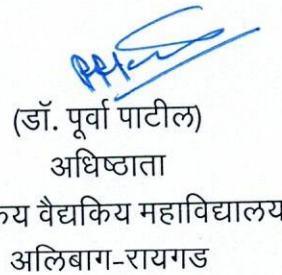 (डॉ. पूर्वा पाटील)
अधिष्ठाता
वैद्यकिय महाविद्यालय
अलिबाग-रायगड